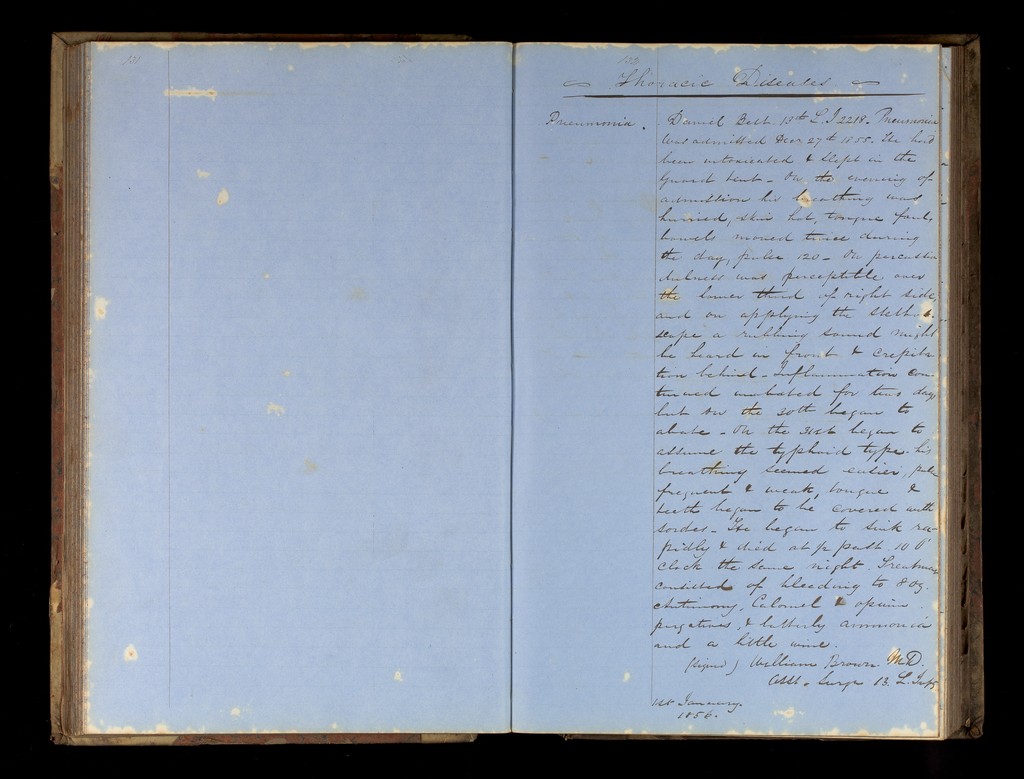 Thoracic Diseases
Pneumonia.
Daniel Best. 13th L. I 2218. Pneumonia
Was admitted Decr 27th 1855. He had
been intoxicated & slept in the
Guard tent - On the evening of
admission his breathing was
hurried, skin hot, tongue foul,
bowels moved twice during
the day, pulse 120 - On percussion
dulness was perceptible over
the lower third of right side,
and on applying the stetho
scope a rubbing sound might
be heard in front & crepita
tion behind - Inflammation con
tinued unabated for two days
but on the 30th began to
abate - On the 31st began to
assume the typhoid type. his
breathing seemed easier, pulse
frequent & weak, tongue &
teeth began to be covered with
sordes - He began to sink ra-
pidly & died at ½ past 10 O'
Clock the same night. Treatment
consisted of bleeding to 8 oz.
Antimony, Calomel & opium
purgatives, & latterly ammonia
and a little wine.
(Signed) William Brown. M.D.
Asst. Surgn 13. L. Infy
1st January
1856.